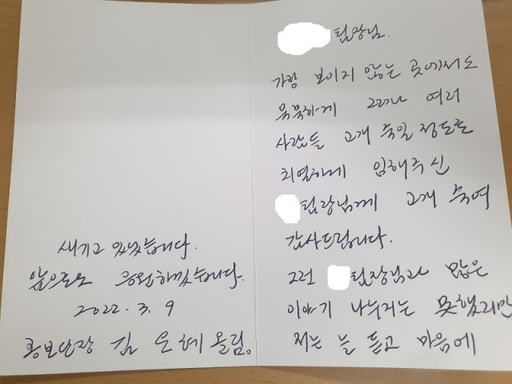 팀장님.
가장 보이지 않는 곳에서도
묵묵하게 그러나 여러
사람들 고개 숙일 정도로
치열하게 임해주신
팀장님께 고개 숙여
감사드립니다.
그런 팀장님과 많은
이야기 나누지는 못했지만
저는 늘 듣고 마음에
새기고 있었습니다.
앞으로도 응원하겠습니다.
2022. 3. 9
홍보단장 김 은혜 올림.